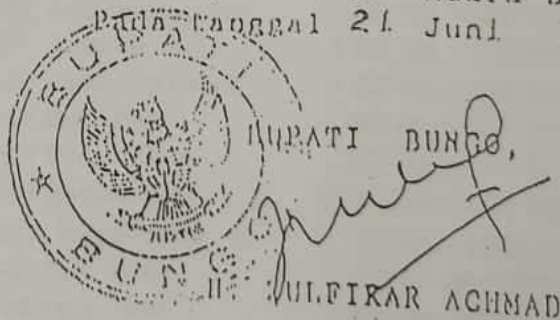 Pada Tanggal 21 Juni
BUPATI
BUPATI BUNGO,
BUNGO
H. ZULFIKAR ACHMAD